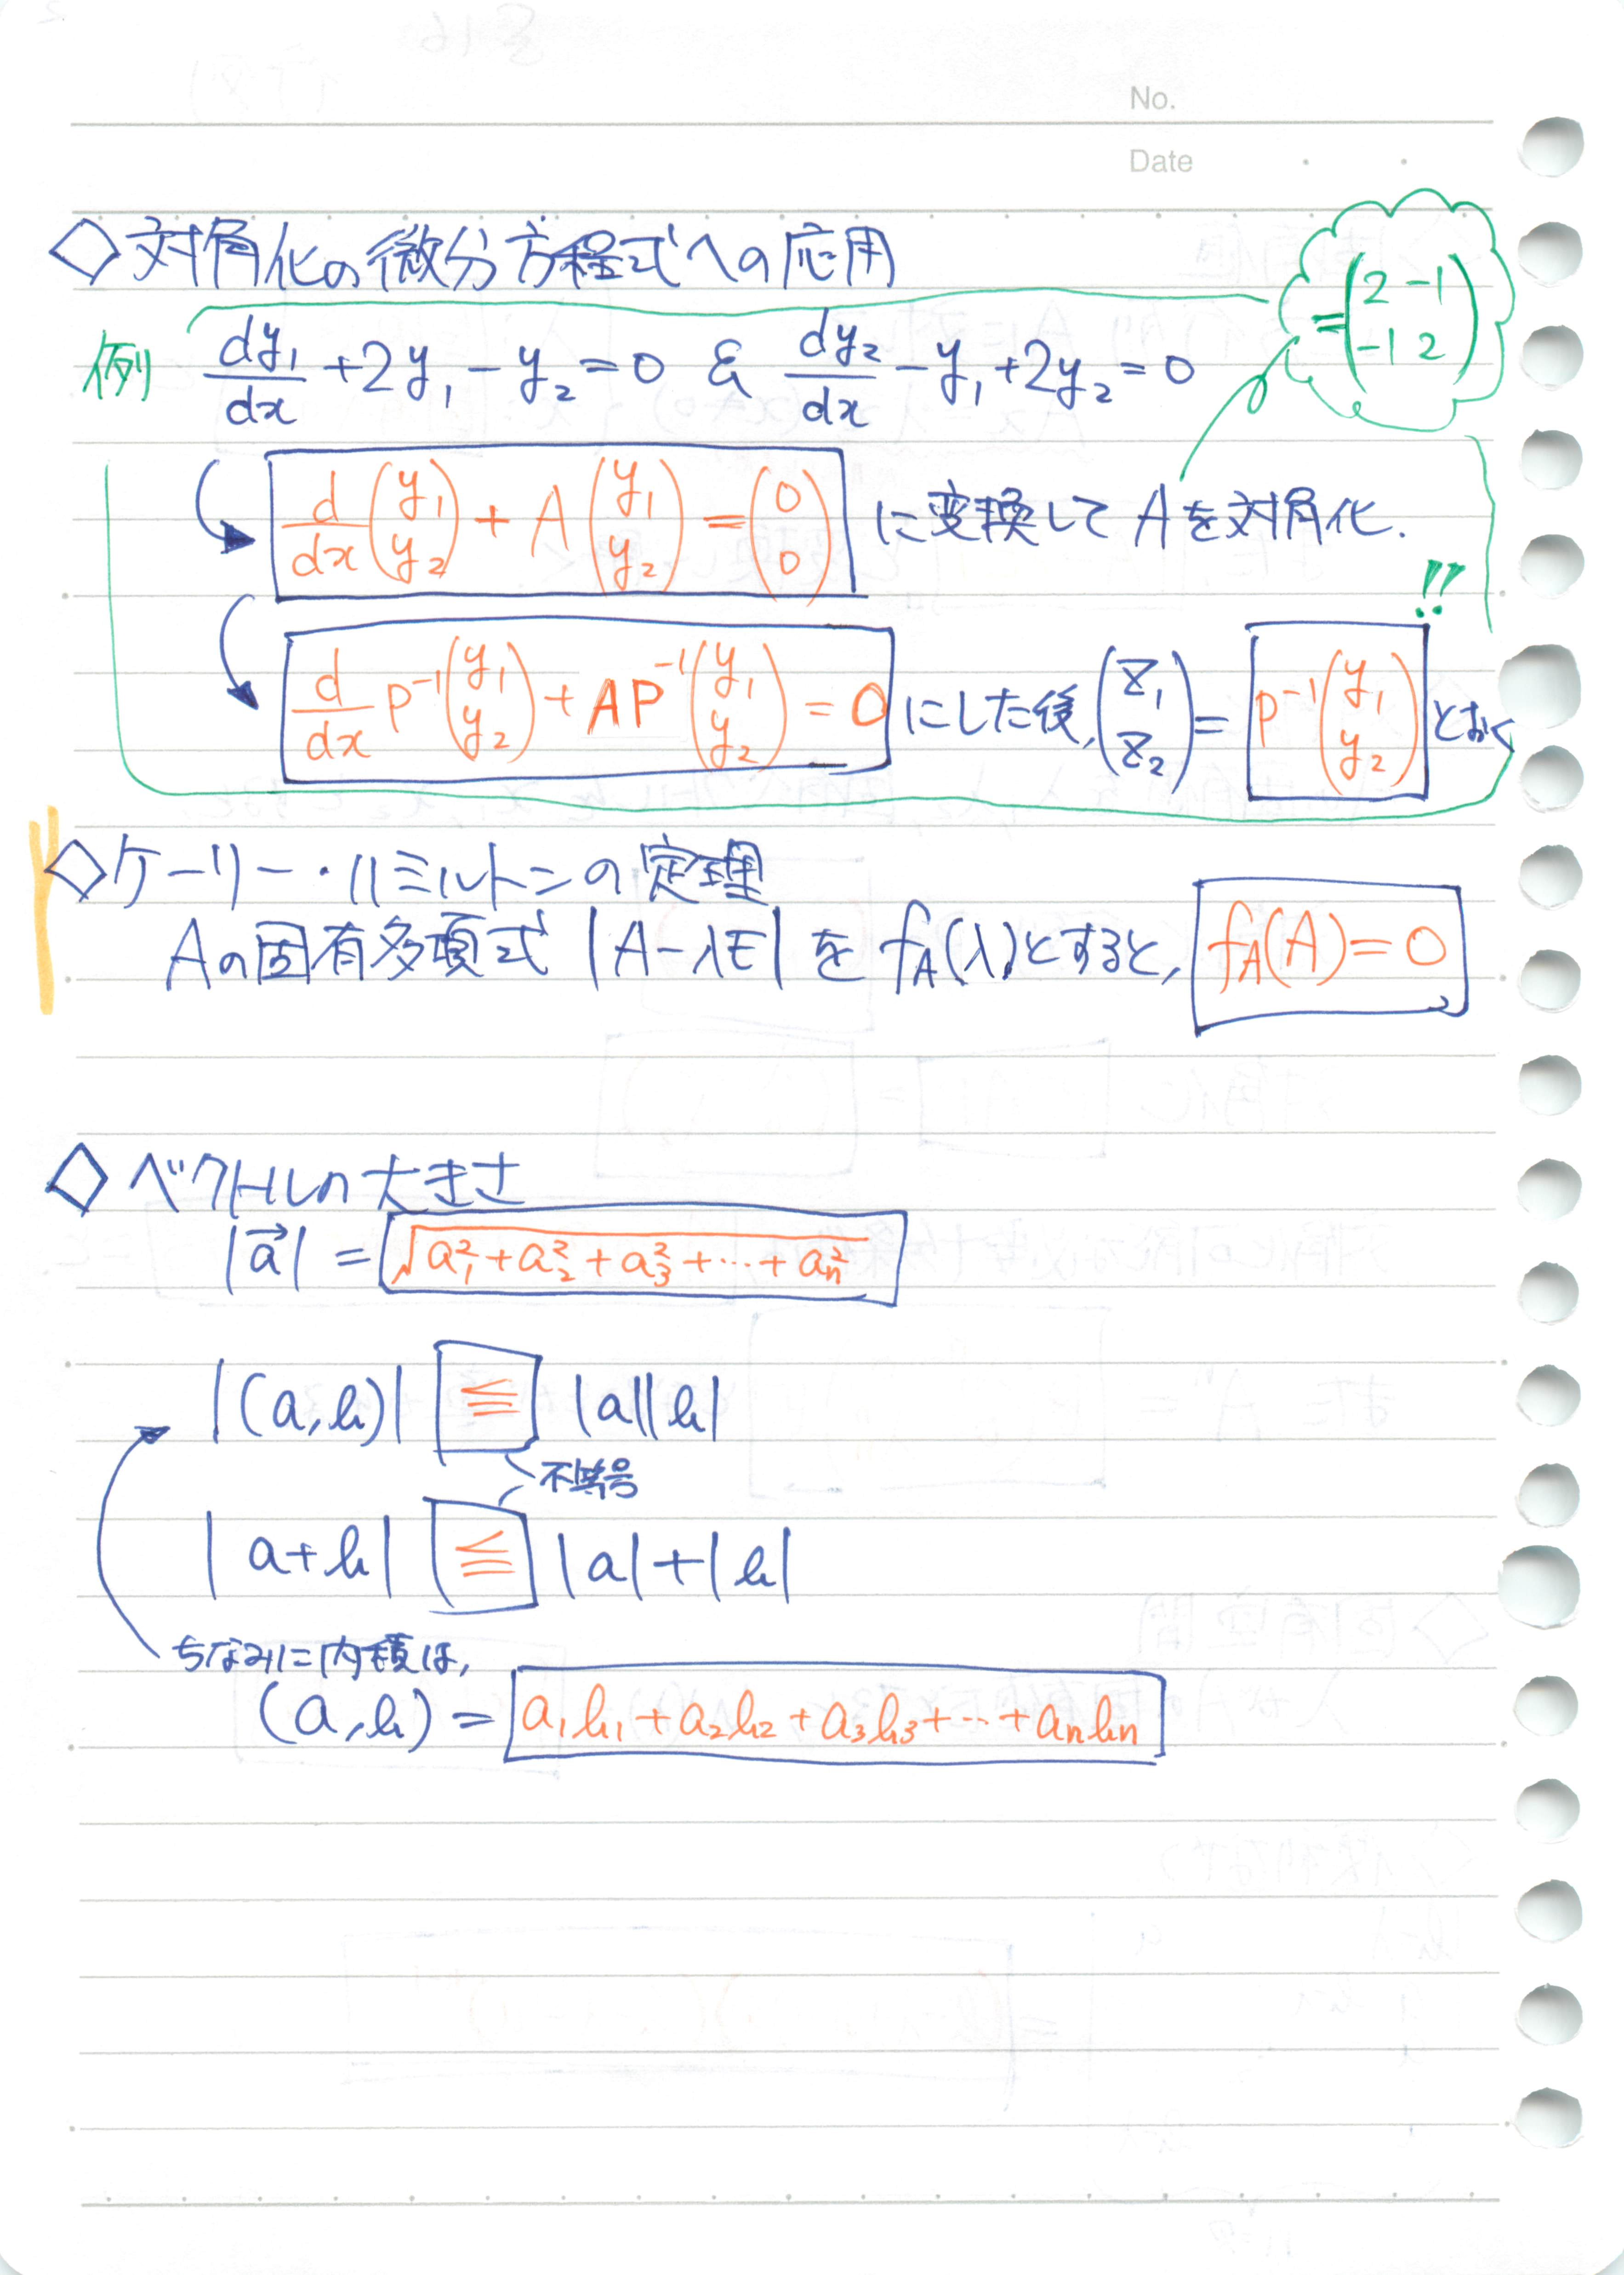 No.
Date
◇対角化の微分方程式への応用
=(2 -1
-1 2)
例 dy₁/dx +2y₁-y₂=0 & dy₂/dx -y₁+2y₂=0
d/dx (y₁ y₂) + A (y₁ y₂) = (0 0) に変換して Aを対角化.
!!
d/dx P⁻¹(y₁ y₂) + AP⁻¹(y₁ y₂) = 0 にした後, (z₁ z₂) = P⁻¹(y₁ y₂) とおく
◇ケーリー・ハミルトンの定理
Aの固有多項式 |A-λE| を f_A(λ)とすると, f_A(A)=0
◇ベクトルの大きさ
|a→| = √a₁²+a₂²+a₃²+…+aₙ²
|(a,b)| ≦ |a||b|
不等号
|a+b| ≦ |a|+|b|
ちなみに内積は,
(a,b) = a₁b₁+a₂b₂+a₃b₃+…+aₙbₙ